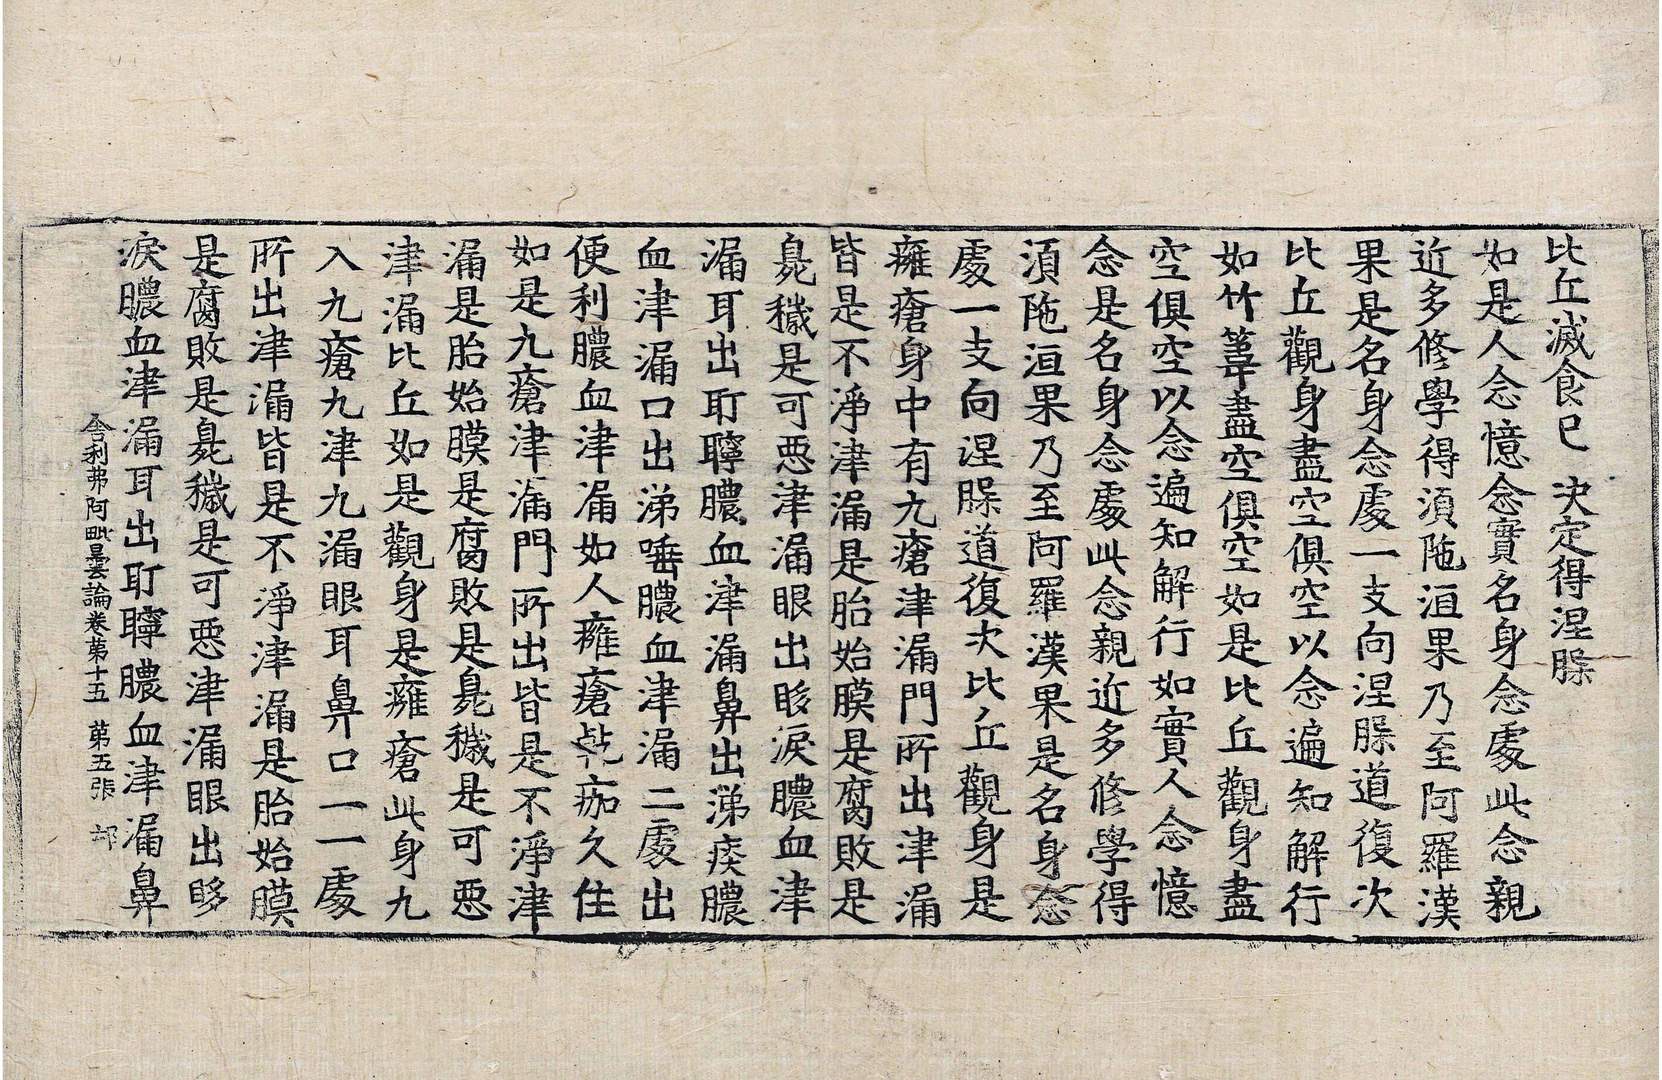 比丘滅食已 決定得涅槃
如是人念憶念實名身念處此念親
近多修學得湏陁洹果乃至阿羅漢
果是名身念處一支向涅槃道復次
比丘觀身盡空俱空以念遍知解行
如竹葦盡空俱空如是比丘觀身盡
空俱空以念遍知解行如實人念憶
念是名身念處此念親近多修學得
湏陁洹果乃至阿羅漢果是名身念
處一支向涅槃道復次比丘觀身是
癰瘡身中有九瘡津漏門所出津漏
皆是不淨津漏是胎始膜是腐敗是
臰穢是可惡津漏眼出眵淚膿血津
漏耳出耵聹膿血津漏鼻出涕痰膿
血津漏口出涕唾膿血津漏二處出
便利膿血津漏如人癰瘡乾痂久住
如是九瘡津漏門所出皆是不淨津
漏是胎始膜是腐敗是臰穢是可惡
津漏比丘如是觀身是癰瘡此身九
入九瘡九津九漏眼耳鼻口一一處
所出津漏皆是不淨津漏是胎始膜
是腐敗是臰穢是可惡津漏眼出眵
淚膿血津漏耳出耵聹膿血津漏鼻
舍利弗阿毗曇論卷第十五 第五張